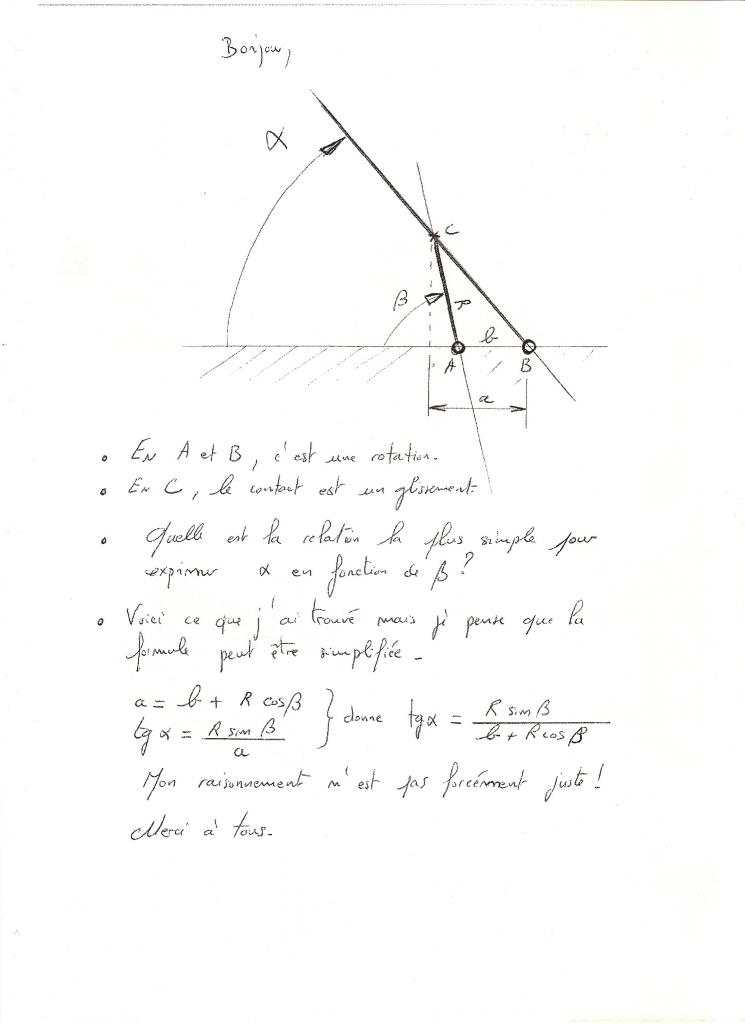 Bonjour,
α
C
β
R
b
A
B
a
• EN A et B, c'est une rotation.
• EN C, le contact est un glissement.
• Quelle est la relation la plus simple pour
exprimer α en fonction de β ?
• Voici ce que j'ai trouvé mais je pense que la
formule peut être simplifiée.
a = b + R cos β
tg α = R sin β / a } donne tg α = R sin β / b + R cos β
Mon raisonnement n'est pas forcément juste !
Merci à tous.